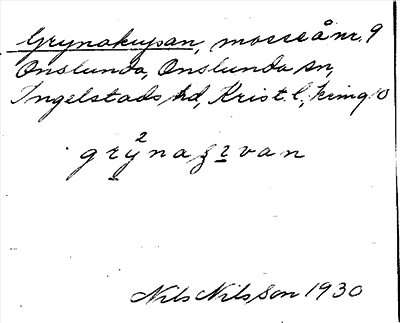 Grynakupan, mosse å nr. 9
Onslunda, Onslunda sn,
Ingelstads hd, Krist. l., kring 10
Nils Nilsson 1930